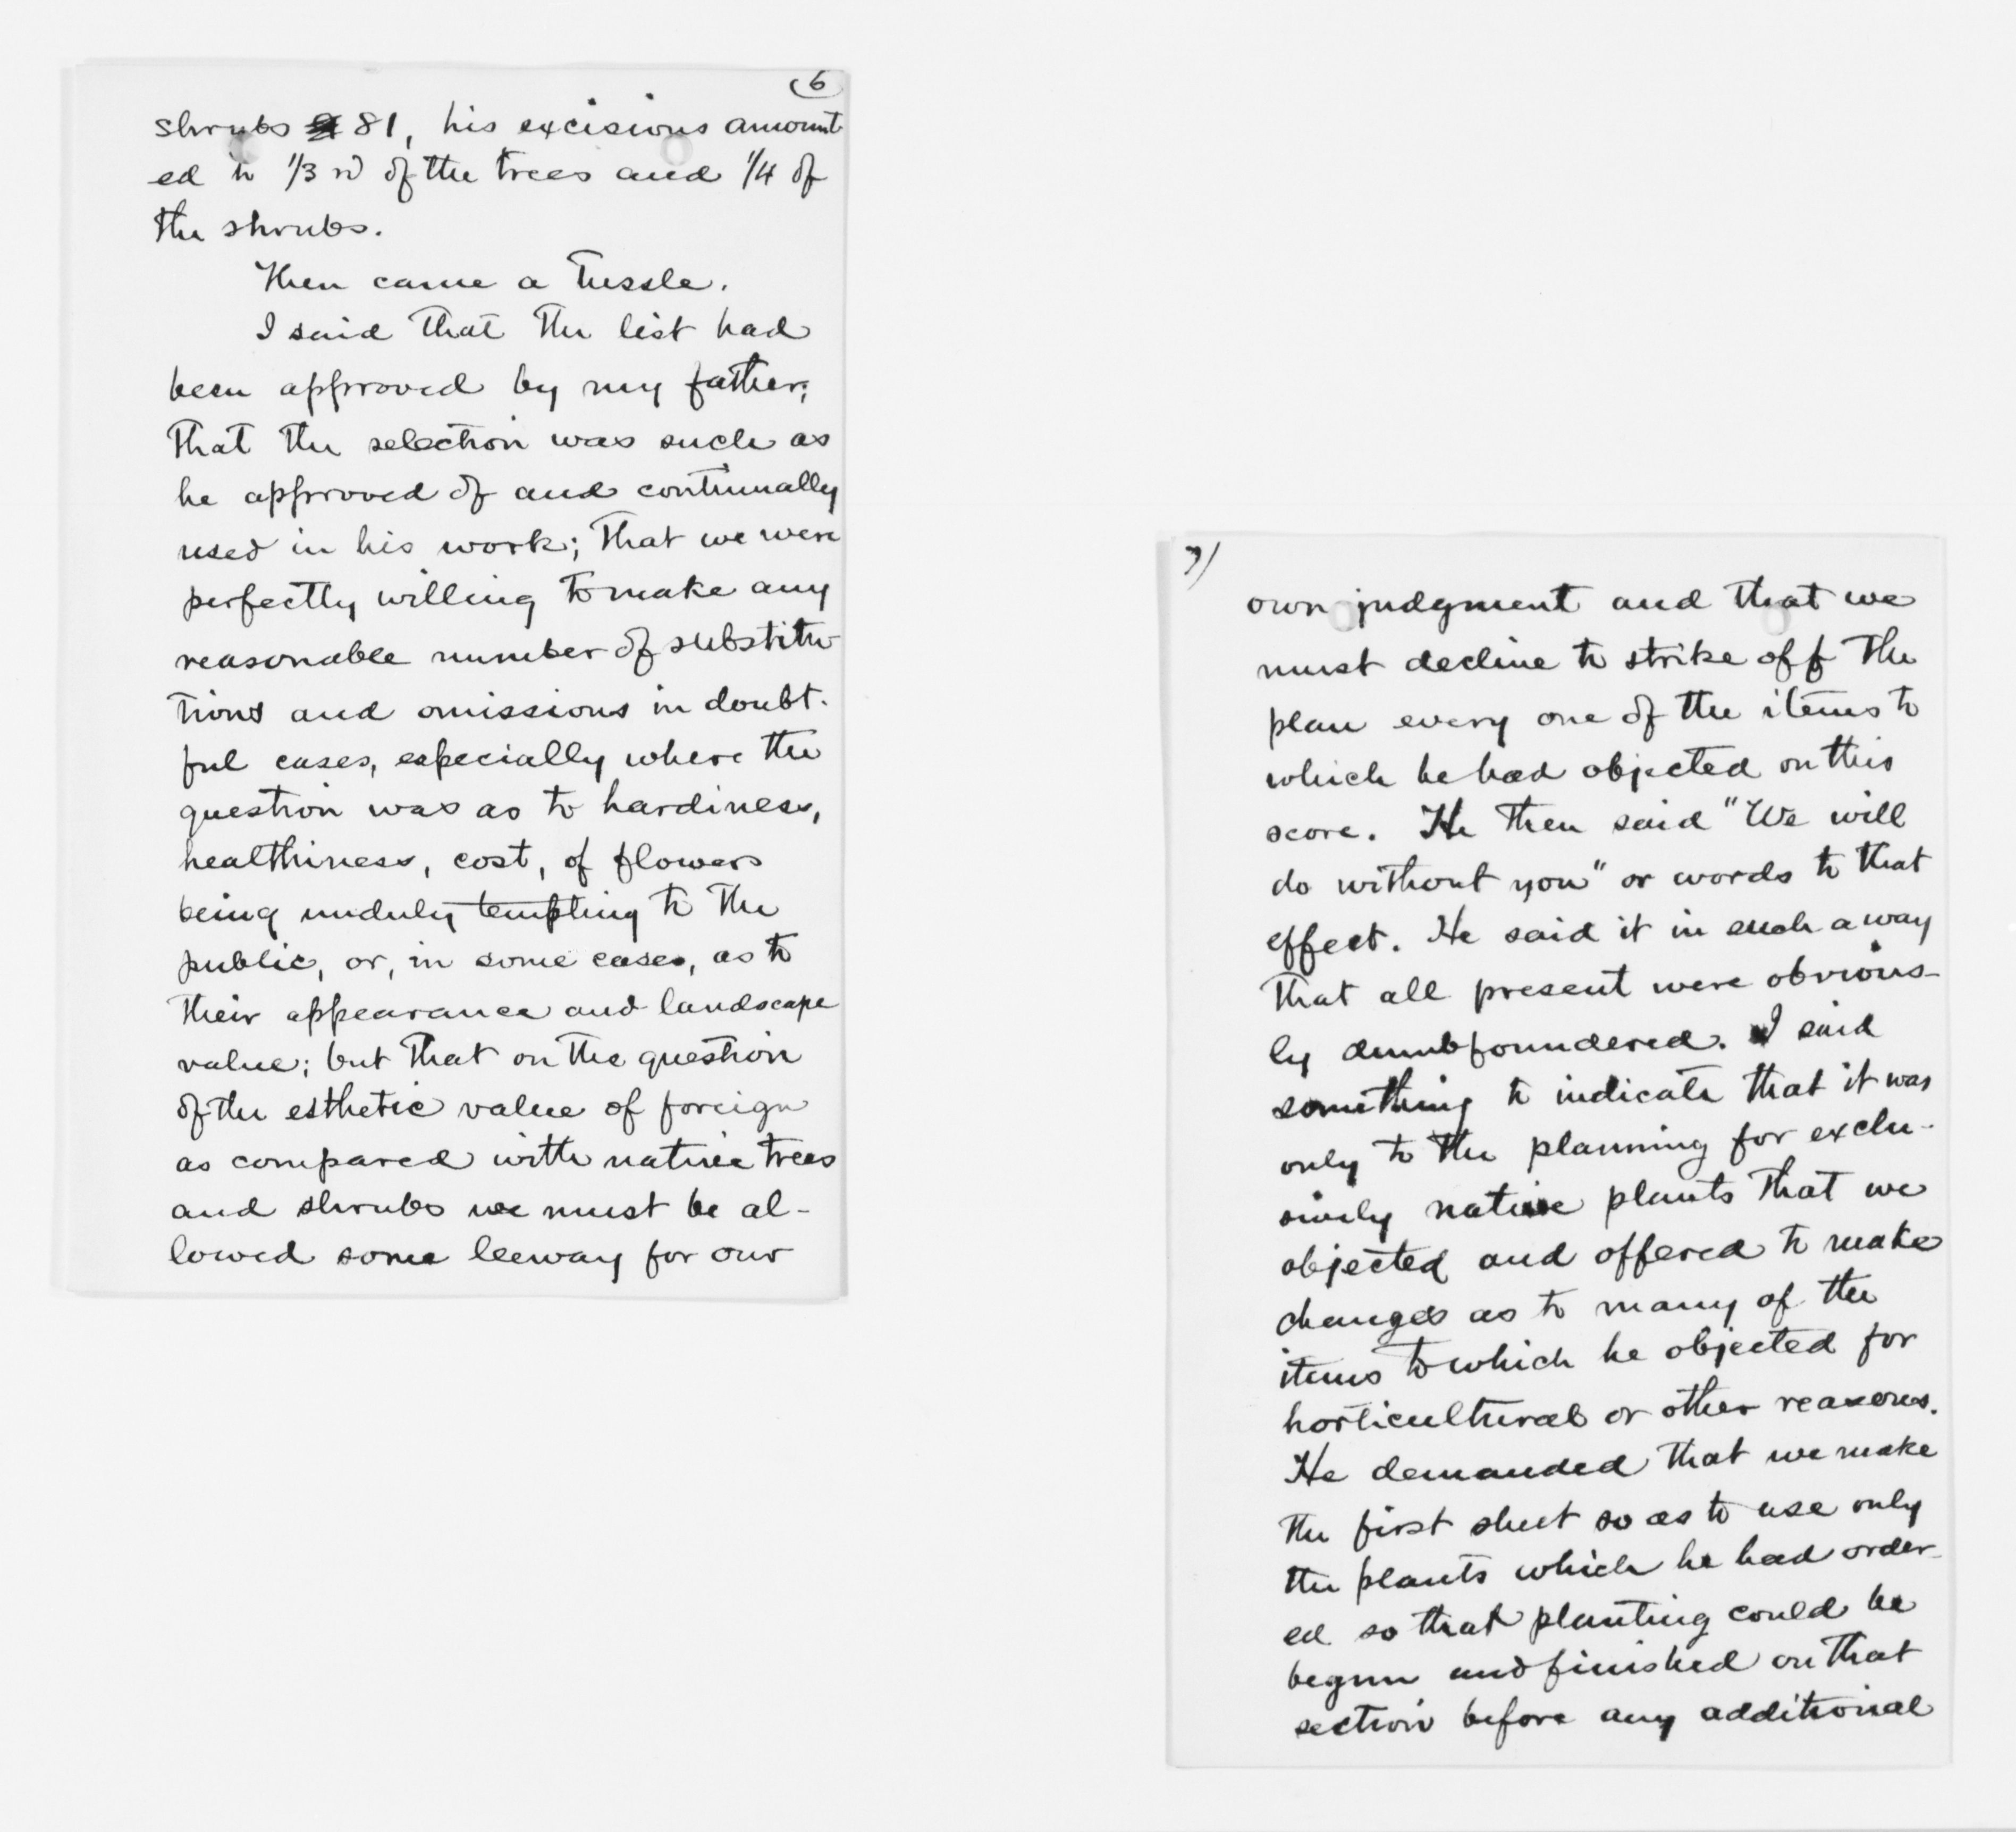 (6
shrubs 81, his excisions amount
ed to 1/3 rd of the trees and 1/4 of
the shrubs.
Then came a tussle.
I said that the list had
been approved by my father;
that the selection was such as
he approved of and continually
used in his work; that we were
perfectly willing to make any
reasonable number of substitu-
tions and omissions in doubt-
ful cases, especially where the
question was as to hardiness,
healthiness, cost, of flowers
being unduly tempting to the
public, or, in some cases, as to
their appearance and landscape
value; but that on the question
of the esthetic value of foreign
as compared with native trees
and shrubs we must be al-
lowed some leeway for our
7)
own judgment and that we
must decline to strike off the
plan every one of the items to
which he had objected on this
score. He then said "We will
do without you" or words to that
effect. He said it in such a way
that all present were obvious-
ly dumbfoundered. I said
something to indicate that it was
only to the planning for exclu-
sively native plants that we
objected and offered to make
changes as to many of the
items to which he objected for
horticultural or other reasons.
He demanded that we make
the first sheet so as to use only
the plants which he had order-
ed so that planting could be
begun and finished on that
section before any additional